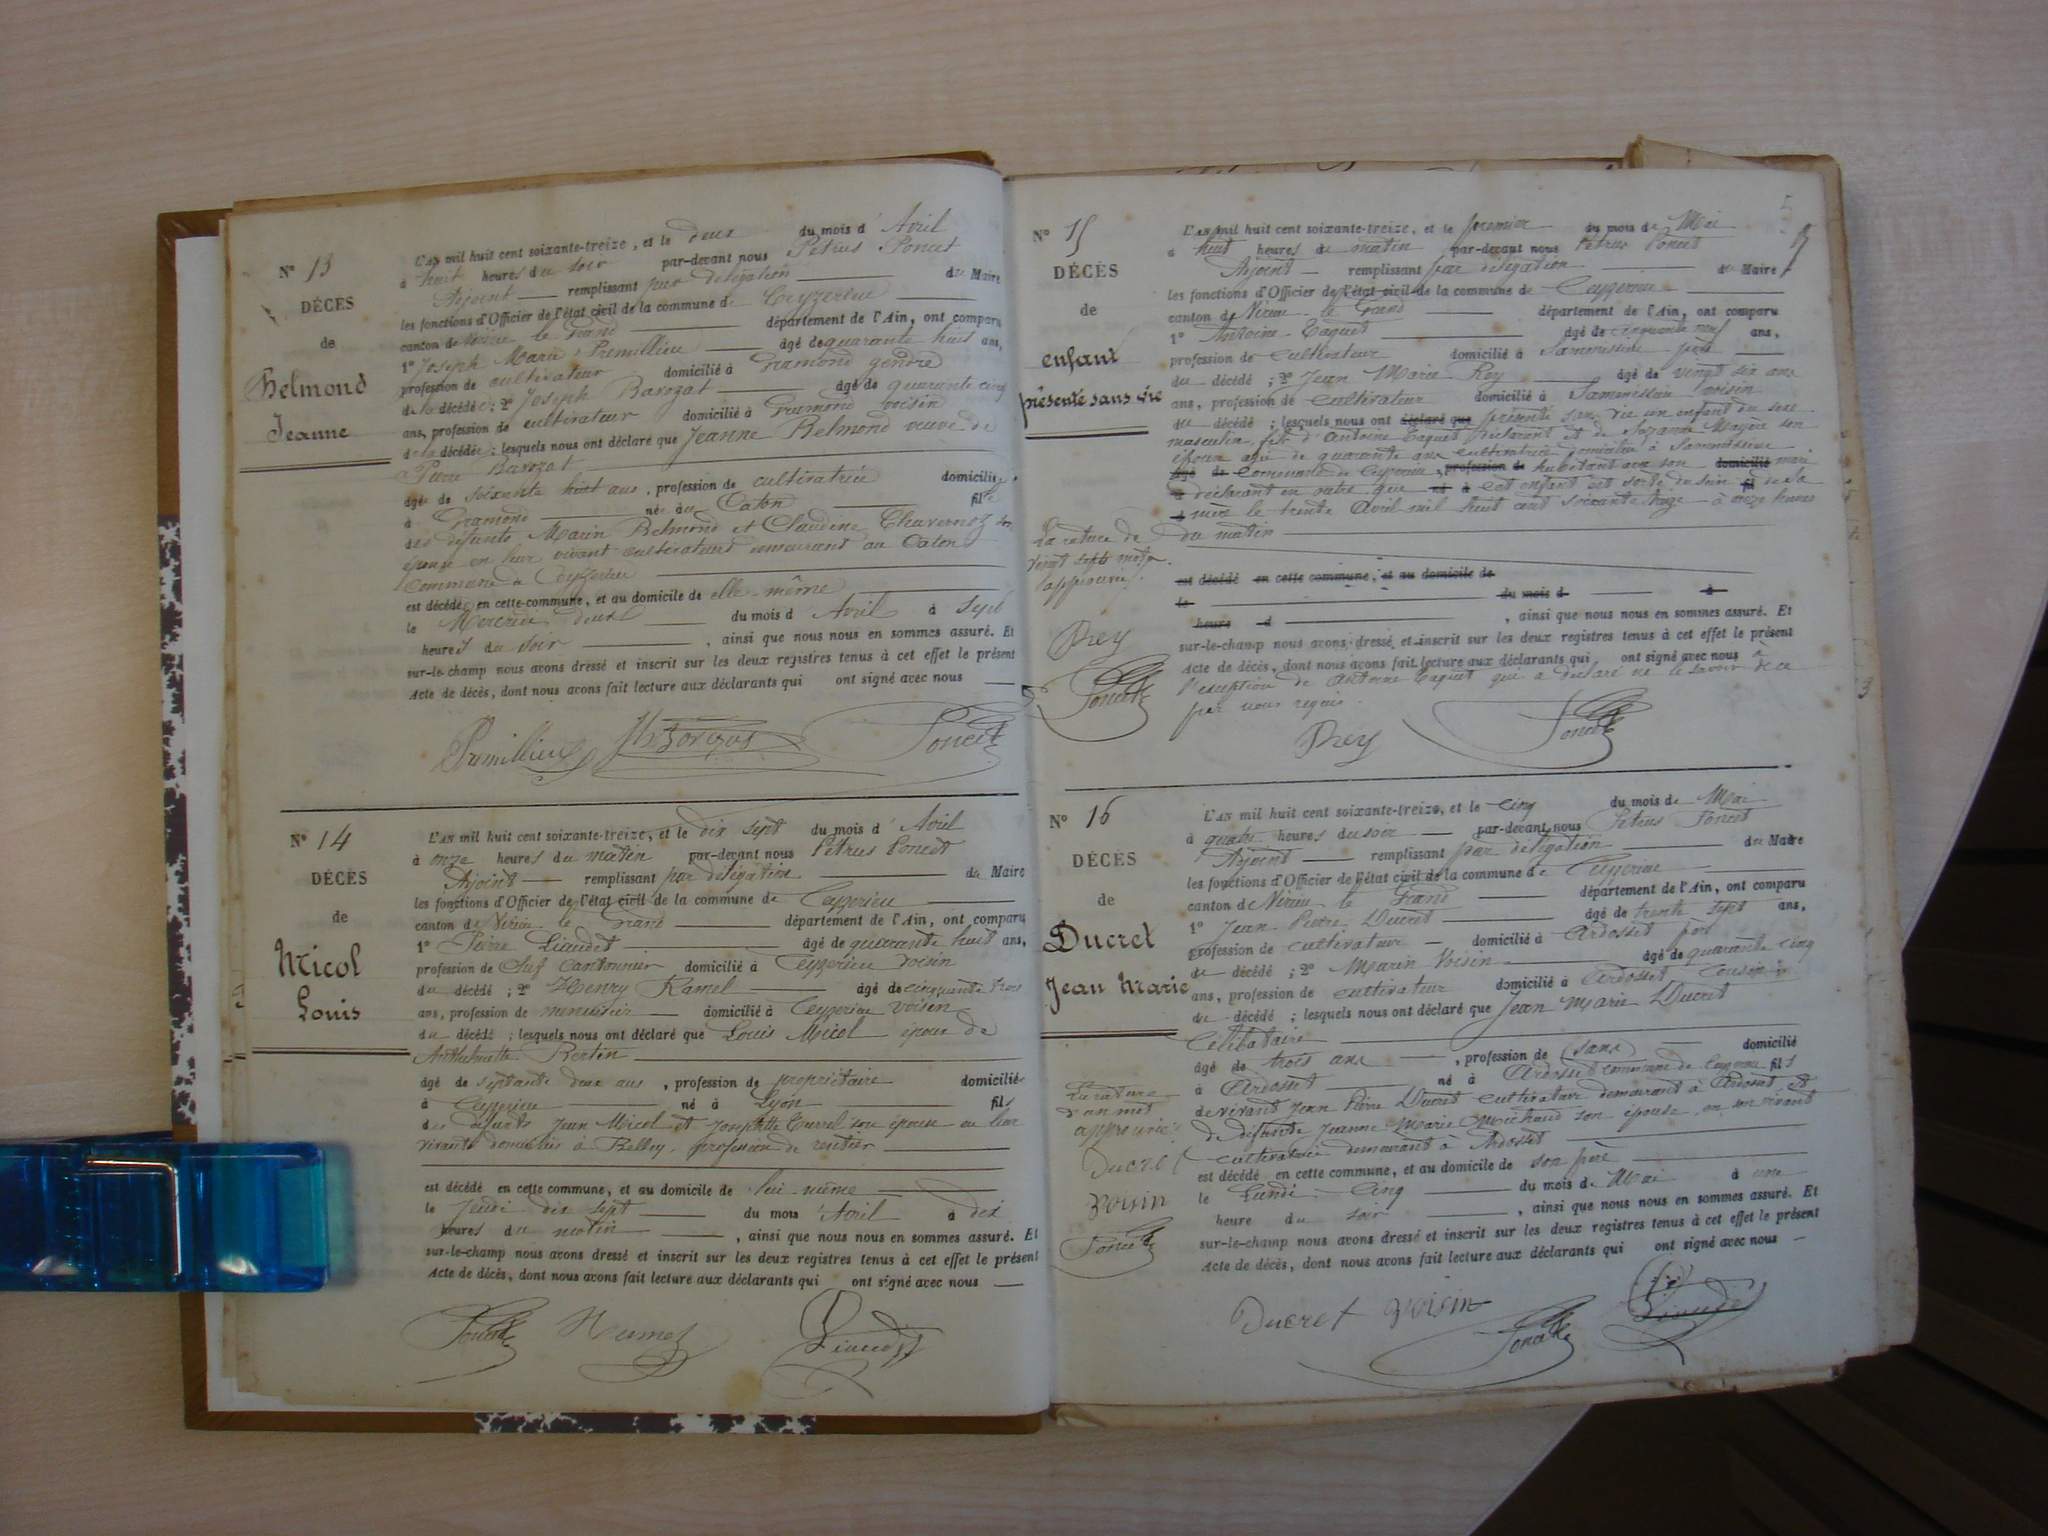 Nº 13
DÉCÈS
de
Belmond
Jeanne
L'AN mil huit cent soixante-treize, et le deux du mois d'Avril
à huit heures du soir par-devant nous Petrus Poncet
Adjoint remplissant par délégation du Maire
les fonctions d'Officier de l'état civil de la commune de Ceyzerieu
canton de Virieu le Grand département de l'Ain, ont comparu
1º Joseph Marie Premillieu âgé de quarante huit ans,
profession de cultivateur domicilié à Gramond gendre
de la décédée ; 2º Joseph Barozat âgé de quarante cinq
ans, profession de cultivateur domicilié à Gramond voisin
de la décédée ; lesquels nous ont déclaré que Jeanne Belmond veuve de
Pierre Barozat
âgé de soixante huit ans, profession de cultivatrice domiciliée
à Gramond née au Caton fille
des défunts Marin Belmond et Claudine son
épouse en leur vivant cultivateurs demeurant au Caton
Commune de Ceyzerieu
est décédé en cette commune, et au domicile de elle-même
le Mercredi deux du mois d'Avril à sept
heures du soir, ainsi que nous nous en sommes assuré. Et
sur-le-champ nous avons dressé et inscrit sur les deux registres tenus à cet effet le présent
Acte de décès, dont nous avons fait lecture aux déclarants qui ont signé avec nous
Premillieu Poncet
Nº 14
DÉCÈS
de
Micol
Louis
L'AN mil huit cent soixante-treize, et le dix sept du mois d'Avril
à onze heures du matin par-devant nous Petrus Poncet
Adjoint remplissant par délégation du Maire
les fonctions d'Officier de l'état civil de la commune de Ceyzerieu
canton de Virieu le Grand département de l'Ain, ont comparu
1º Pierre Liaudet âgé de quarante huit ans,
profession de Chef Cantonnier domicilié à Ceyzerieu voisin
du décédé ; 2º Henry âgé de cinquante trois
ans, profession de menuisier domicilié à Ceyzerieu voisin
du décédé ; lesquels nous ont déclaré que Louis Micol époux de
Anthelmette Bertin
âgé de septante deux ans, profession de propriétaire domicilié
à Ceyzerieu né à Lyon fils
des défunts Jean Micol et Josephtte son épouse en leur
vivants domiciliés à Belley, profession de rentier
est décédé en cette commune, et au domicile de lui-même
le Jeudi dix sept du mois d'Avril à dix
heures du matin, ainsi que nous nous en sommes assuré. Et
sur-le-champ nous avons dressé et inscrit sur les deux registres tenus à cet effet le présent
Acte de décès, dont nous avons fait lecture aux déclarants qui ont signé avec nous
Poncet Liaudet
5
Nº 15
DÉCÈS
de
enfant
présenté sans vie
L'AN mil huit cent soixante-treize, et le premier du mois de Mai
à huit heures du matin par-devant nous Petrus Poncet
Adjoint remplissant par délégation du Maire
les fonctions d'Officier de l'état civil de la commune de Ceyzerieu
canton de Virieu le Grand département de l'Ain, ont comparu
1º Antoine Taquet âgé de cinquante neuf ans,
profession de cultivateur domicilié à père
du décédé ; 2º Jean Marie Rey âgé de vingt six ans
ans, profession de cultivateur domicilié à voisin
du décédé ; lesquels nous ont déclaré que présenté sans vie un enfant du sexe
masculin, fils d'Antoine Taquet déclarant et de Suzanne son
épouse agée de quarante ans cultivatrice domiciliée à
âgé de Commune de Ceyzerieu, profession de habitant avec son domicilié mari
à déclarant en outre que né à cet enfant est sorti du sein fil de sa
mère le trente Avril mil huit cent soixante treize à onze heures
du matin
La rature de
vingt sept mots
approuvé.
est décédé en cette commune, et au domicile de
le du mois d à
heure d, ainsi que nous nous en sommes assuré. Et
sur-le-champ nous avons dressé et inscrit sur les deux registres tenus à cet effet le présent
Acte de décès, dont nous avons fait lecture aux déclarants qui ont signé avec nous à
l'exception de Antoine Taquet qui a déclaré ne le savoir de ce
par nous requis.
Rey
Poncet
Rey Poncet
Nº 16
DÉCÈS
de
Ducret
Jean Marie
L'AN mil huit cent soixante-treize, et le cinq du mois de Mai
à quatre heures du soir par-devant nous Petrus Poncet
Adjoint remplissant par délégation du Maire
les fonctions d'Officier de l'état civil de la commune de Ceyzerieu
canton de Virieu le Grand département de l'Ain, ont comparu
1º Jean Pierre Ducret âgé de trente sept ans,
profession de cultivateur domicilié à Ardosset père
du décédé ; 2º Marin Voisin âgé de quarante cinq
ans, profession de cultivateur domicilié à Ardosset Cousin
du décédé ; lesquels nous ont déclaré que Jean Marie Ducret
Célibataire
âgé de trois ans, profession de sans domicilié
à Ardosset né à Ardosset commune de Ceyzerieu fils
de vivant Jean Pierre Ducret cultivateur demeurant à Ardosset et
de défunte Jeanne Marie Michaud son épouse en son vivant
cultivatrice demeurant à Ardosset
La rature
d'un mot
approuvée
Ducret
voisin
Poncet
est décédé en cette commune, et au domicile de son père
le Lundi Cinq du mois de Mai à une
heure du soir, ainsi que nous nous en sommes assuré. Et
sur-le-champ nous avons dressé et inscrit sur les deux registres tenus à cet effet le présent
Acte de décès, dont nous avons fait lecture aux déclarants qui ont signé avec nous
Ducret voisin Poncet